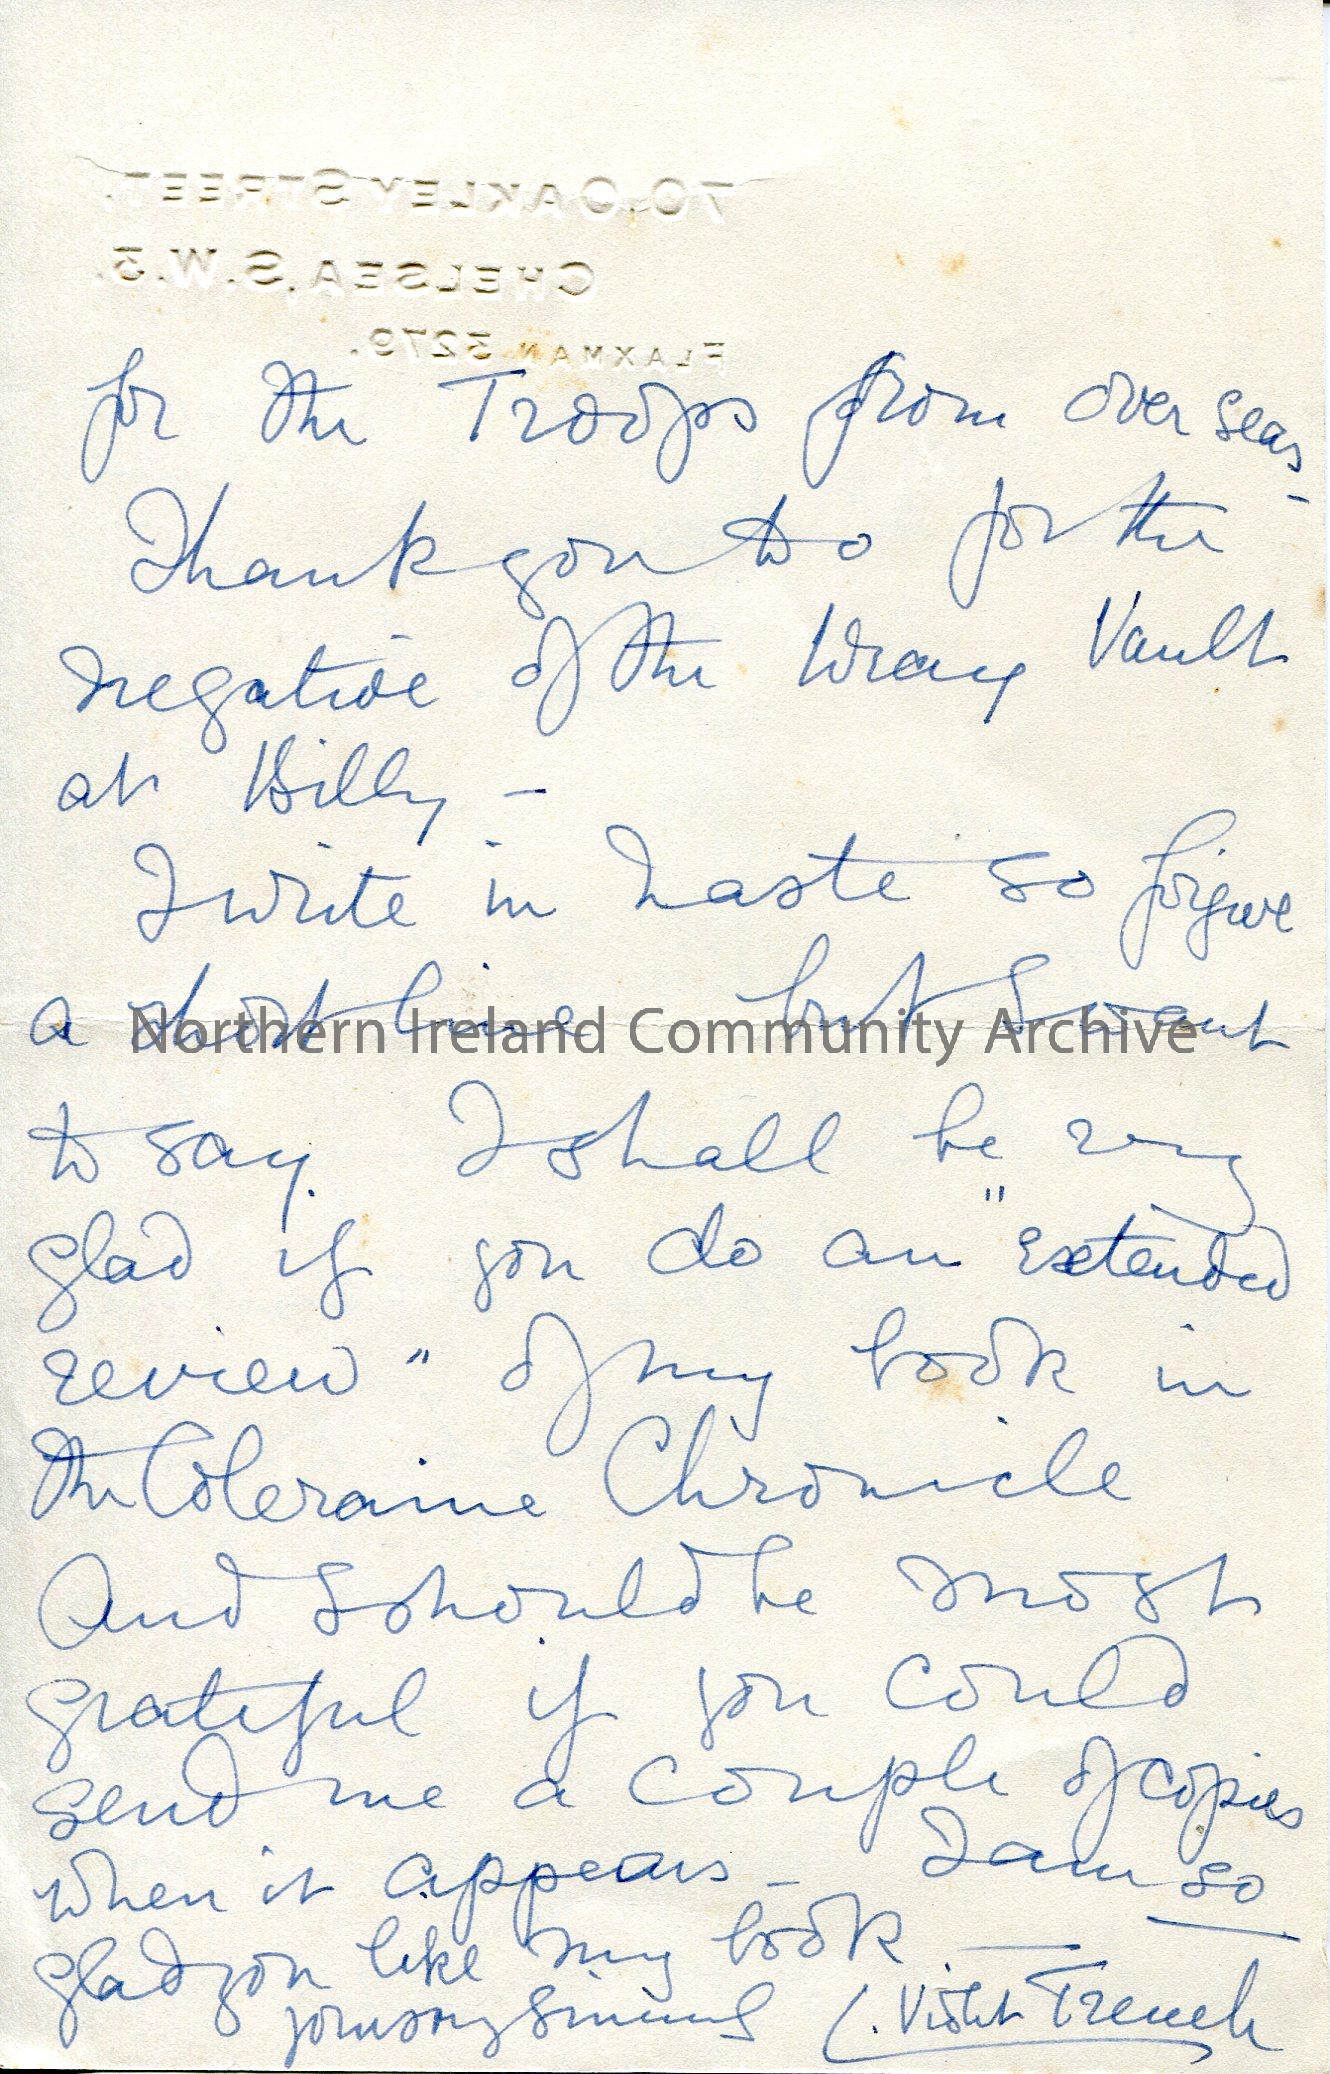 70, OAKLEY STREET.
CHELSEA, S.W.3.
FLAXMAN 3279.
for the Troops from over seas -
Thank you too for the
negative of the Wray Vault
at Billy -
I write in haste so forgive
a short line but I want
Northern Ireland Community Archive
to say. I shall be very
glad if you do an "extended
review" of my book in
the Coleraine Chronicle
And I should be most
grateful if you could
send me a couple of copies
when it appears - I am so
glad you like my book -
yours very sincerely C. Violet Trench